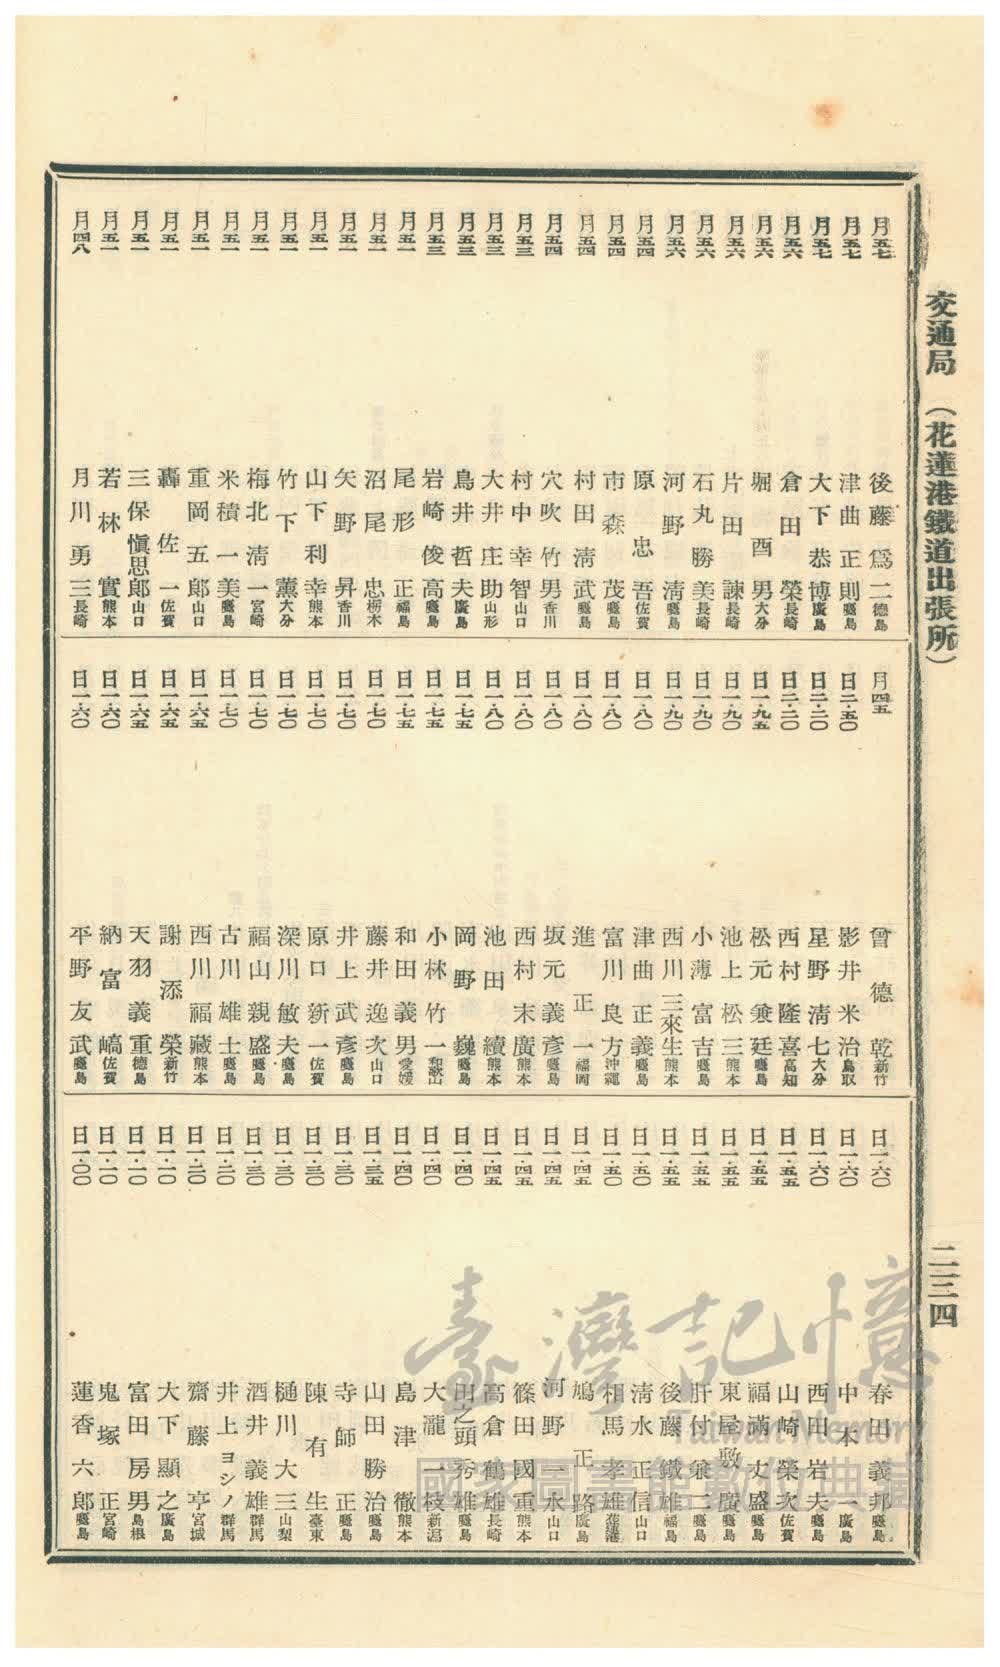 交通局 （花蓮港鐵道出張所）
二三四
月五七 後藤爲二 德島
月五七 津曲正則 鹿兒島
月五七 大下恭博 廣島
月五六 倉田榮 長崎
月五六 堀酉男 大分
月五六 片田諫 長崎
月五六 石丸勝美 長崎
月五六 河野淸 鹿兒島
月五四 原忠吾 佐賀
月五四 市森茂 鹿兒島
月五四 村田淸武 鹿兒島
月五四 穴吹竹男 香川
月五三 村中幸智 山口
月五三 大井庄助 山形
月五三 鳥井哲夫 廣島
月五三 岩崎俊高 鹿兒島
月五一 尾形正 福島
月五一 沼尾忠 栃木
月五一 矢野昇 香川
月五一 山下利幸 熊本
月五一 竹下薫 大分
月五一 梅北淸一 宮崎
月五一 米積一美 鹿兒島
月五一 重岡五郎 山口
月五一 轟佐一 佐賀
月五一 三保愼思郎 山口
月五一 若林實 熊本
月四八 月川勇三 長崎
月四五 曾德乾 新竹
日二・五〇 影井米治 鳥取
日二・二〇 星野淸七 大分
日二・二〇 西村隆喜 高知
日一・九五 松元兼廷 鹿兒島
日一・九〇 池上松三 熊本
日一・九〇 小薄富吉 鹿兒島
日一・九〇 西川三來生 熊本
日一・八〇 津曲正義 鹿兒島
日一・八〇 富川良方 沖繩
日一・八〇 進正一 福岡
日一・八〇 坂元義彥 鹿兒島
日一・八〇 西村末廣 熊本
日一・八〇 池田續 熊本
日一・七五 岡野巍 鹿兒島
日一・七五 小林竹一 和歌山
日一・七五 和田義男 愛媛
日一・七〇 藤井逸次 山口
日一・七〇 井上武彥 鹿兒島
日一・七〇 原口新一 佐賀
日一・七〇 深川敏夫 鹿兒島
日一・七〇 福山親盛 鹿兒島
日一・七〇 古川雄士 鹿兒島
日一・六五 西川福藏 熊本
日一・六五 謝添榮 新竹
日一・六五 天羽義重 德島
日一・六〇 納富嶋 佐賀
日一・六〇 平野友武 鹿兒島
日一・六〇 春田義邦 鹿兒島
日一・六〇 中本一 廣島
日一・六〇 西田岩夫 鹿兒島
日一・五五 山崎榮次 佐賀
日一・五五 福滿丈盛 鹿兒島
日一・五五 東屋敷廣 鹿兒島
日一・五五 肝付兼二 鹿兒島
日一・五五 後藤鐵雄 福島
日一・五〇 淸水正信 山口
日一・五〇 相馬孝雄 花蓮港
日一・四五 鳩正路 廣島
日一・四五 河野一水 山口
日一・四五 篠田國重 熊本
日一・四五 高倉鶴雄 長崎
日一・四〇 田之頭秀雄 鹿兒島
日一・四〇 大瀧一枝 新潟
日一・四〇 島津徹 熊本
日一・三五 山田勝治 鹿兒島
日一・三〇 寺師正 鹿兒島
日一・三〇 陳有生 臺東
日一・三〇 樋川大三 山梨
日一・三〇 酒井義雄 群馬
日一・二〇 井上ヨシノ 群馬
日一・二〇 齋藤亨 宮城
日一・二〇 大下顯之 廣島
日一・一〇 富田房男 島根
日一・一〇 鬼塚正 宮崎
日一・〇〇 蓮香六郎 鹿兒島
臺灣記憶
Taiwan Memory
國家圖書館數位典藏